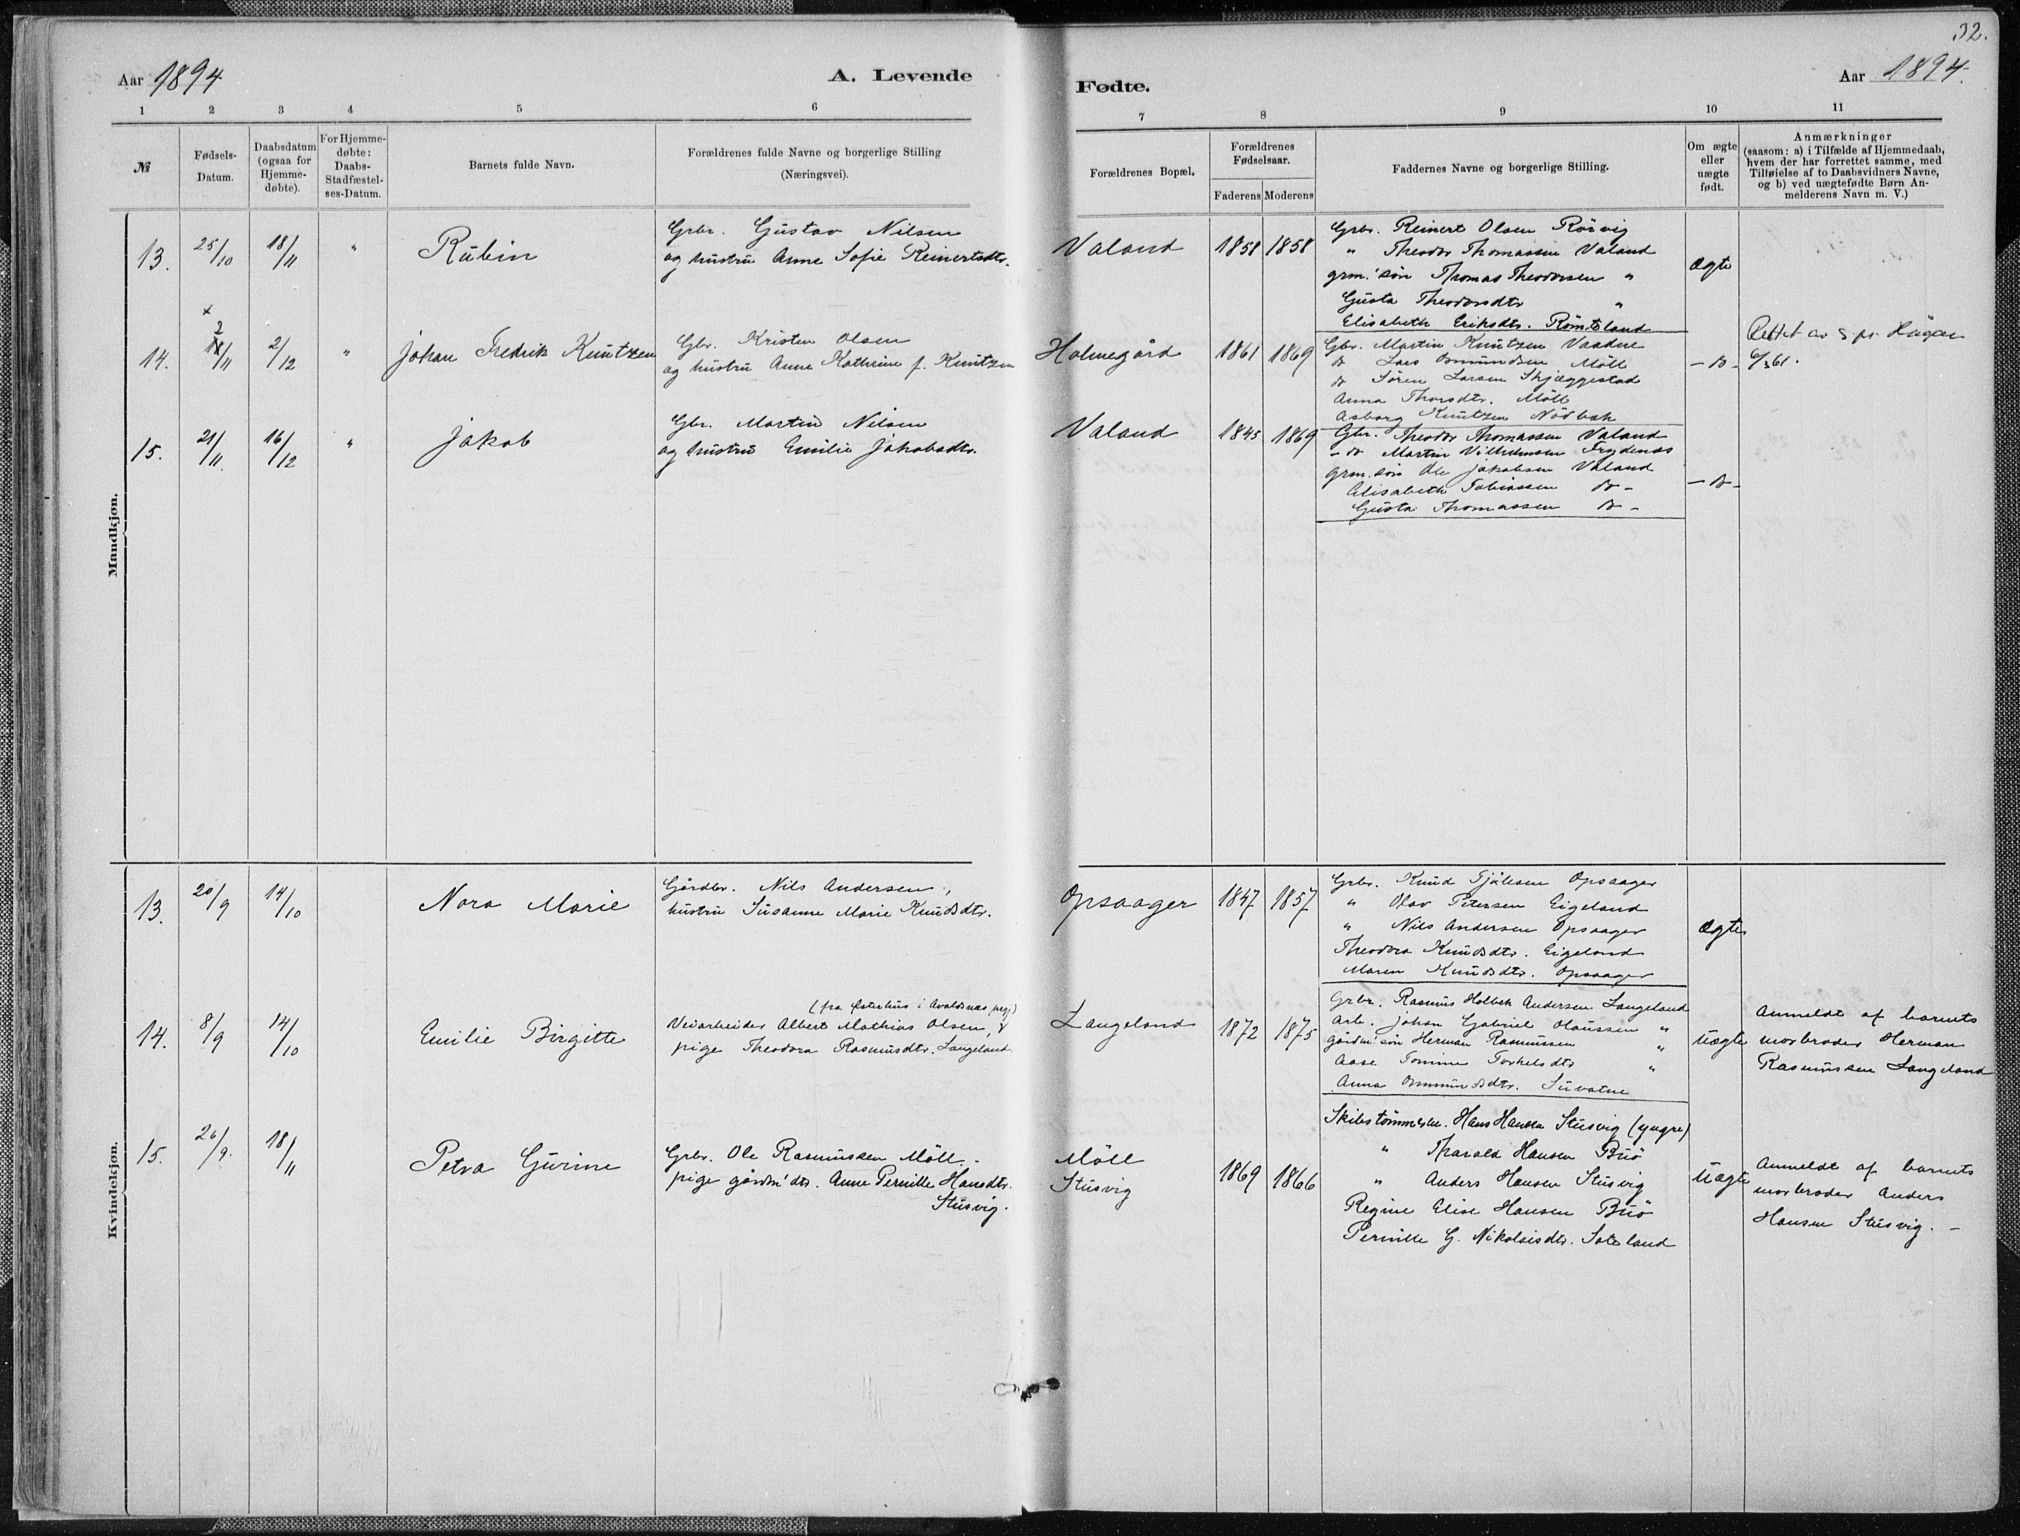 32.
Aar 1894
A. Levende
Fødte.
Aar 1894.
1 2 3 4 5 6
7 8 9 10 11
№
Fødsels-
Datum.
Daabsdatum
(ogsaa for
Hjemme-
døbte).
For Hjemme-
døbte:
Daabs-
Stadfæstel-
ses-Datum.
Barnets fulde Navn.
Forældrenes fulde Navne og borgerlige Stilling
(Næringsvei).
Forældrenes Bopæl.
Forældrenes
Fødselsaar.
Faderens Moderens
Faddernes Navne og borgerlige Stilling.
Om ægte
eller
uægte
født.
Anmærkninger
(saasom: a) i Tilfælde af Hjemmedaab,
hvem der har forrettet samme, med
Tilføielse af to Daabsvidners Navne,
og b) ved uægtefødte Børn An-
melderens Navn m. V.)
Mandkjøn.
13. 25/10 18/11 " Rubin
Grbr. Gustav Nilsen
og hustru Anne Sofie Reinertsdtr.
Valand 1858 1858
Grbr. Reinert Olsen Rørvig
" Theodor Thomassen Valand
grm.'søn Thomas Theodorsen "
Gusta Theodorsdtr "
Elisabeth Eriksdtr. Rømtsland
ægte
14. 2/11 2/12 " Johan Fredrik Knutzen
Gbr. Kristen Olsen
og hustru Anne Kathrine f. Knutzen
Holmegård 1861 1869
Gbr. Martin Knutzen
Do Lars Osmundsen Møll
Do Søren Larsen Skjæggestad
Anna Thorsdtr. Møll
Asborg Knutzen Nødbak
- Do -
Rettet av spr. Haugen
6/3 61.
15. 21/11 16/12 " Jakob
Gbr. Martin Nilsen
og hustru Emilie Jakobsdtr.
Valand 1845 1869
Gbr. Theodor Thomassen Valand
- Do Martin Vilhelmsen Frydenæs
grm. søn Ole Jakobsen Valand
Elisabeth Tobiassen Do -
Gusta Thomassen Do -
- Do -
Kvindekjøn.
13. 20/9 14/10 Nora Marie
Gårdbr. Nils Andersen,
hustru Susanne Marie Knudsdtr.
Opsaager 1847 1857
Grbr. Knud Tjølsen Opsaager
" Olav Petersen Eigeland
" Nils Andersen Opsaager
Theodora Knudsdtr. Eigeland
Maren Knudsdtr. Opsaager
ægte
14. 8/9 14/10 Emilie Birgitte
(fra Østrehus i Avaldsnæs prgj)
Veiarbeider Albert Mathias Olsen, &
pige Theodora Rasmusdtr. Langeland
Langeland 1872 1875
Grbr. Rasmus Holbek Andersen Langeland
Arb. Johan Gabriel Hanssen "
gårdm.'søn Herman Rasmussen "
Aase Tomine Torkelsdtr "
Anna Ommundsdtr. Suvatne
Uægte
Anmeldt af barnets
morbroder Herman
Rasmussen Langeland
15. 26/9. 18/11 Petra Gurine
Grbr. Ole Rasmussen Møll.
pige gårdm'dtr. Anne Pernille Hansdtr.
Stusvig.
Møll
Stusvig
1869 1866
Skibstømmerm. Hans Hansen Stusvig (yngre)
" Tharald Hansen Buø
" Anders Hansen Stusvig
Regine Elise Hansen Buø
Pernille G. Nikolaisdtr. Soteland
Uægte
Anmeldt af barnets
morbroder Anders
Hansen Stusvig. -